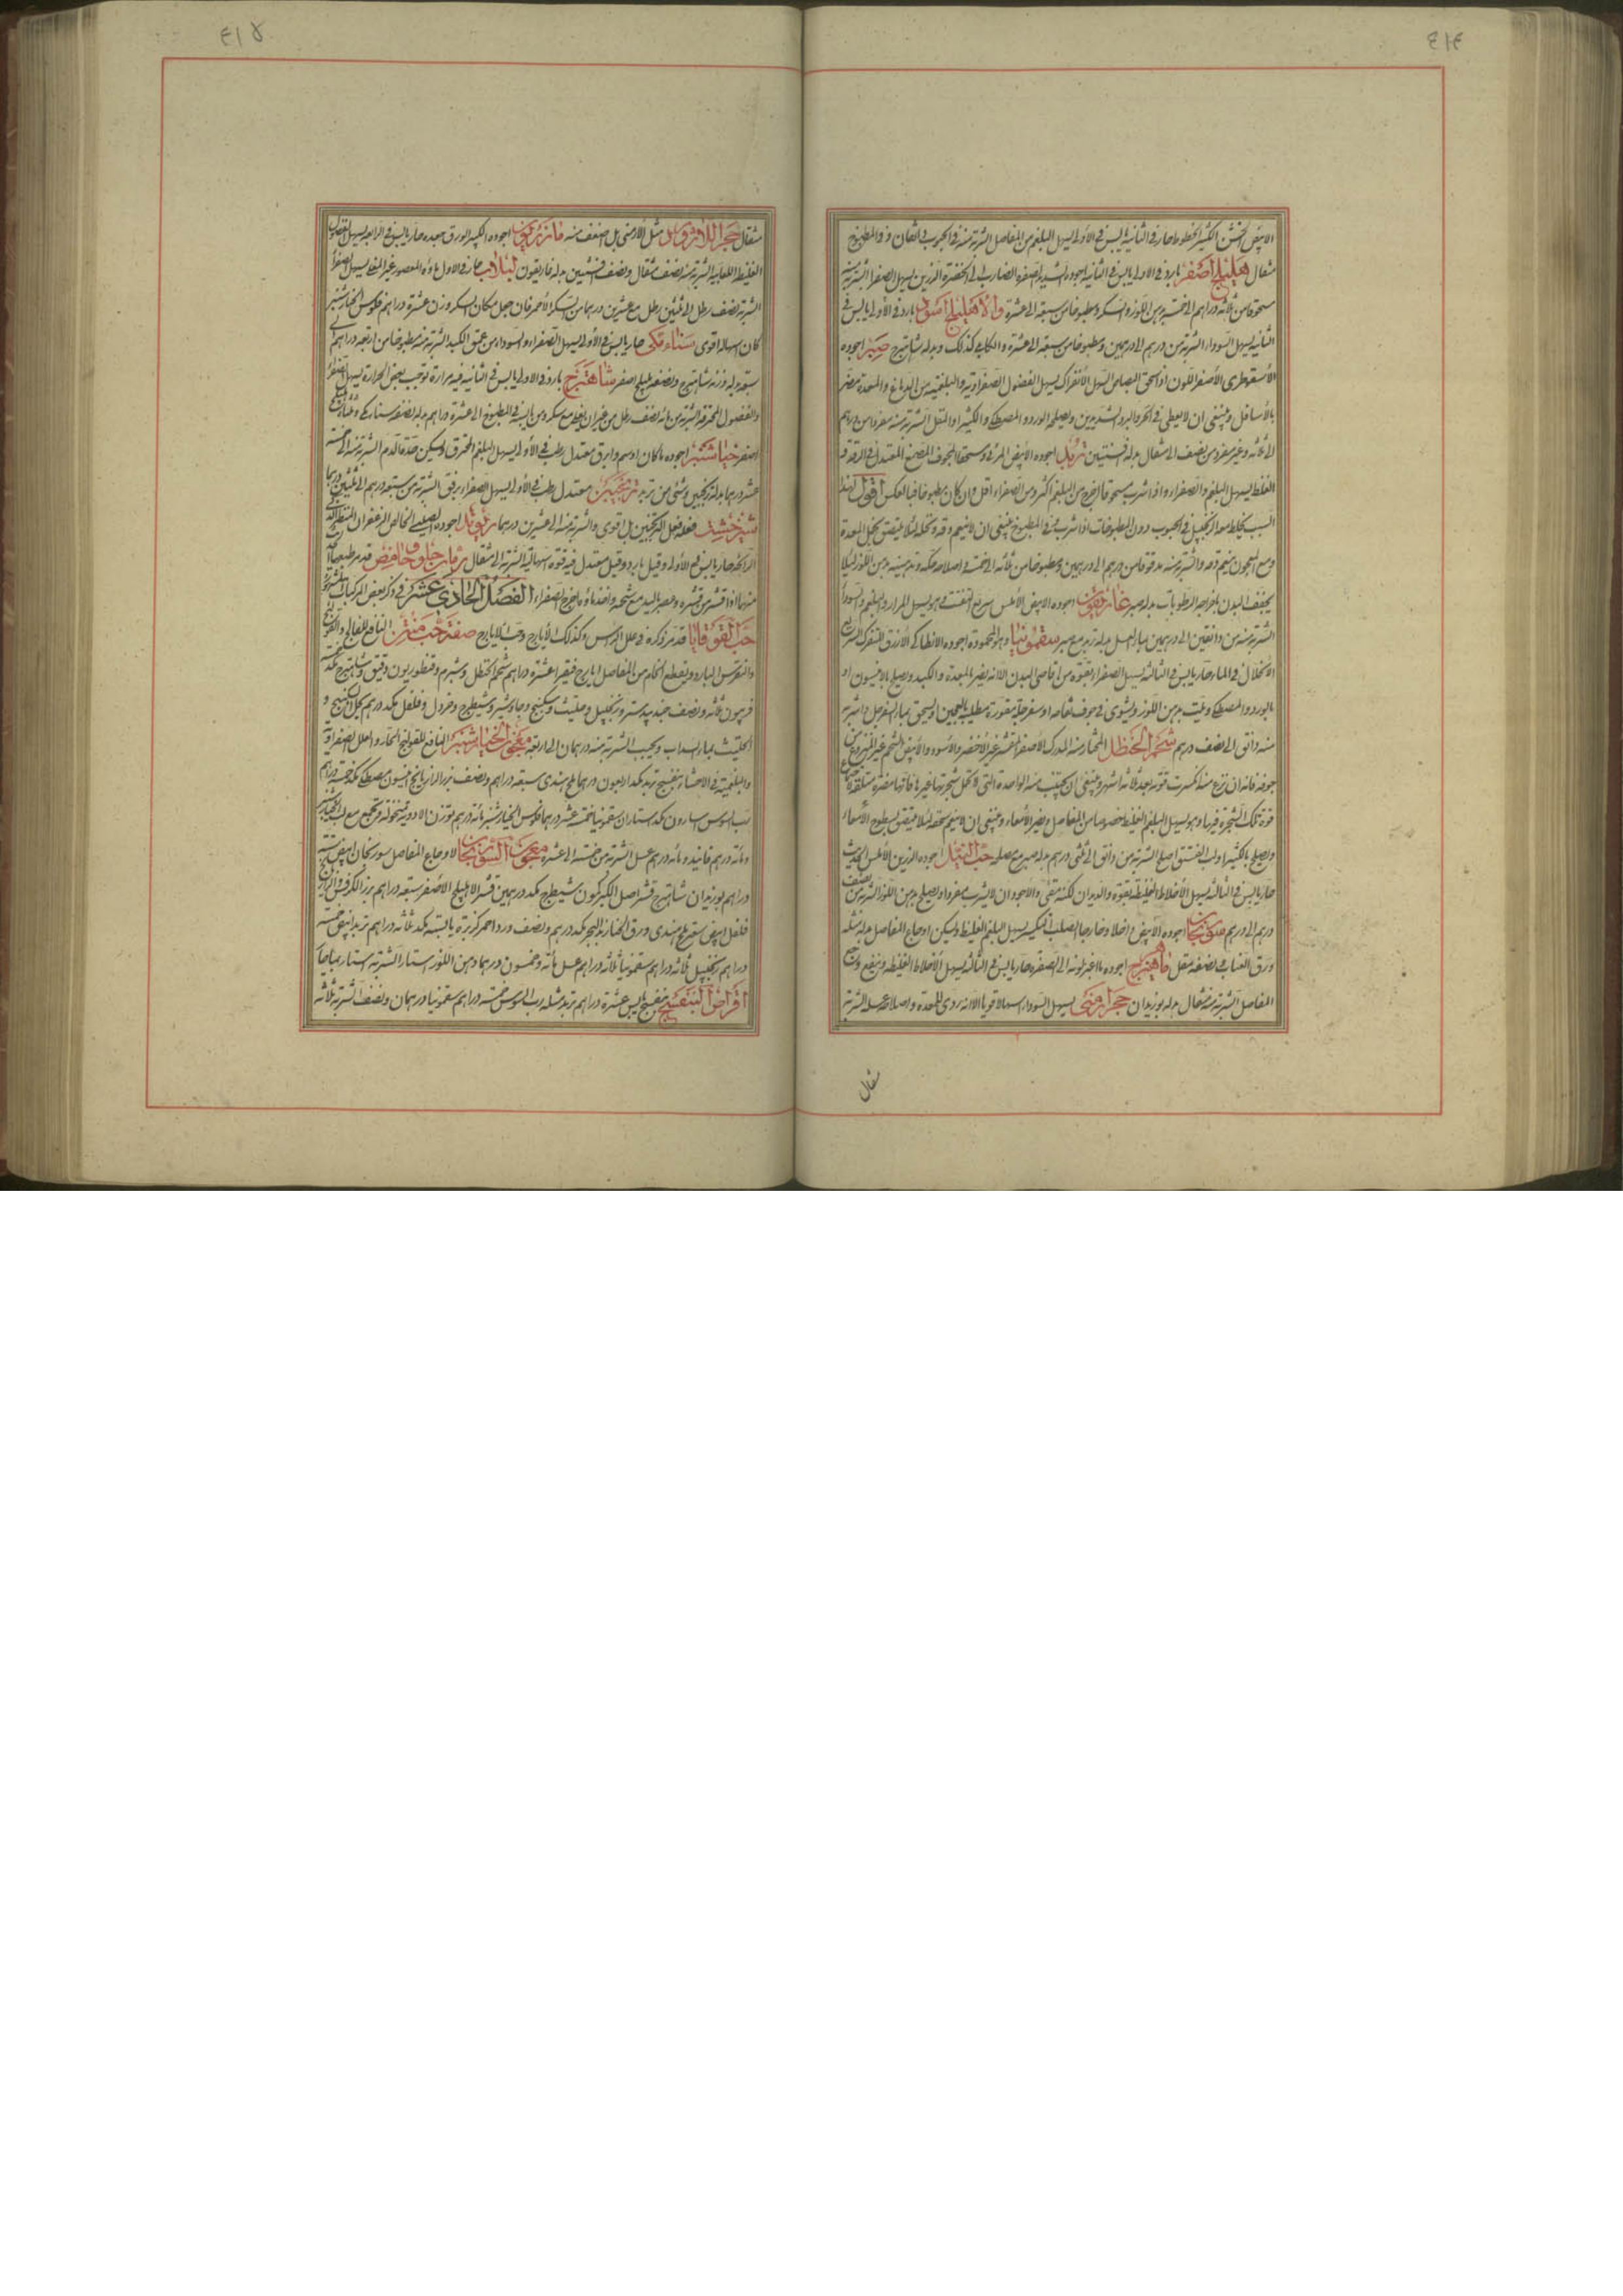 ٤١٤
الابيض الخشن الكثير الخطوط حار في الثانية يابس في الأولى يسهل البلغم من المفاصل الشربة منه في الحبوب والمطبوخ
مثقال هليلج أصفر بارد في الاولى يابس في الثانية اجوده الشديد الصفرة الضارب الى الخضرة الرزين يسهل الصفرا الشربة منه
مسحوقا من ثلثة دراهم الى خمسة بدهن اللوز والسكر ومطبوخا من سبعة الى عشرة والأهليلج أسود بارد في الأولى يابس في
الثانية يسهل السودا الشربة من درهم الى درهمين ومطبوخا من سبعة الى عشرة والكابلي كذلك وبدله شاهترج صبر اجوده
الأسقوطرى الأصفر اللون اذا سحق البصاص السهل الأنفراك يسهل الفضول الصفراوية والبلغمية من الدماغ والمعدة مضر
بالأسافل وينبغى ان لا يعطى في الحر والبرد الشديدين ويصلحه الورد والمصطكى والكثيرا والمقل الشربة منه مفردا من درهم
الى ثلثة وغير مفرد من نصف الى مثقال بدله افسنتين تربد اجوده الأبيض المجوف المصمغ المعتدل في الدقة و
الغلظ يسهل البلغم والصفراء واذا شرب مسحوقا اخرج من البلغم اكثر ومن الصفراء اقل وان كان مطبوخا فبالعكس أقول لهذا
السبب يخلط معه الزنجبيل في الحبوب دون المطبوخات اذا شرب في المطبوخ ينبغى ان لا ينعم دقه ونخله لئلا يلتصق بخمل المعدة
ومع المعجون ينعم دقه والشربة منه مدقوقا من درهم الى درهمين ومطبوخا من ثلثة الى خمسة واصلاحه حكه وتدهينه بدهن اللوز لئلا
يجفف البدن باخراجه الرطوبات بدله صبر غاريقون اجوده الابيض الأملس سريع التفتت وهو يسهل المرار والبلغم والسودا
الشربة منه من دانقين الى درهمين بماء العسل بدله تربد مع صبر سقمونيا وهو المحمودة اجوده الانطاكى الأزرق المتفرك السريع
الانحلال في الماء حار يابس في الثالثة يسهل الصفراء بقوة من اقاصى البدن الا انه يضر بالمعدة والكبد ويصلح بالانيسون او
بالورد والمصطكى ويلت بدهن اللوز ويشوى في جوف تفاحة او سفرجلة مقورة مطلية بالعجين او يسحق بماء السفرجل والشربة
منه دانق الى نصف درهم شحم الحنظل المختار منه المدرك الأصفر القشر غير الأخضر والأسود والأبيض الشحم غير المنزوع من
جوفه فانه ان نزع منه انكسرت قوته بعد ثلاثة اشهر وينبغى ان يجتنب منه الواحدة التى لا تحمل شجرتها غيرها فانها مضرة
قوة تلك الشجرة فيها وهو يسهل البلغم الغليظ خصوصا من المفاصل ويضر الأمعاء وينبغى ان لا ينعم سحقه لئلا يلتصق بسطوح الأمعاء
ويصلح بالكثيرا ولب الفستق اصلح الشربة من دانق الى ثلثى درهم بدله صبر مع مصلحه حب النيل اجوده الرزين الأملس الحديث
حار يابس في الثالثة يسهل الأخلاط الغليظة بقوة والديدان لكنه مقئ والاجود ان لا يشرب مفردا ويصلح بدهن اللوز الشربة من نصف
درهم الى درهم سورنجان اجوده الأبيض داخلا وخارجا الصلب المكسر يسهل البلغم الغليظ ويسكن اوجاع المفاصل بدله مثله
ورق الغناب ونصفه مقل ماهيزهرج اجوده ما اغبر لونه الى الصفرة حار يابس في الثالثة يسهل الأخلاط الغليظة وينفع وجع
المفاصل الشربة منه مثقال بدله بوزيدان حجر ارمنى يسهل السوداء اسهالا قويا الا انه ردى للمعدة واصلاحه غسله الشربة
مثقال
٤١٥
مثقال حجر اللازورد مثل الأرمنى بل اضعف منه مازريون اجوده الكبير الورق جيده حار يابس في الرابعة يسهل الفضول
الغليظة اللعابية الشربة منه نصف مثقال ونصف افسنتين بدله غاريقون لبلاب حار في الأول ماؤه المعصور غير المغلى يسهل الصفرا
الشربة نصف رطل الى ثلثين رطل مع عشرين درهما من السكر الأحمر فان جعل مكان السكر وزن عشرة دراهم فلوس الخيارشنبر
كان اسهاله اقوى سناء مكى حار يابس في الأولى يسهل الصفراء والسوداء من عمق الكبد الشربة منه مطبوخا من اربعة دراهم الى
سبعة بدله وزنه شاهترج ونصفه هليلج اصفر شاهترج بارد في الأولى يابس في الثانية فيه مرارة توجب بعض الحرارة يسهل الصفرا
والفضول المحترقة الشربة من مائه نصف رطل من غير ان يغلى مع سكر ومن يابسه في المطبوخ الى عشرة دراهم بدله نصفه سنا مكى وثلثاه هليلج
اصفر خيارشنبر اجوده ما كان ادسم وابرق معتدل رطب في الأولى يسهل البلغم المحترق ويسكن حدة الدم الشربة منه الى خمسة
عشر درهما بدله ترنجبين وشئ من تربد ترنجبين معتدل رطب في الأولى يسهل الصفراء برفق الشربة من سبعة دراهم الى ثلثين درهما
شيرخشت فعله فعل الترنجبين بل اقوى والشربة منه الى عشرين درهما ريوند اجوده الصينى الخالص الزعفران المنظر الذكى
الرائحة حار يابس في الأولى وقيل بارد وقيل معتدل فيه قوة اسهالية الشربة الى مثقال رمان حلو وحامض قد مر طبعهما
منهما اذا قشر من قشره وعصر باليد مع شحمه واخذ ماؤه اخرج الصفراء الفصل الحادى عشر في ذكر بعض المركبات المسهلة
حب القوقايا قد مر ذكره في علل الرأس وكذلك الأيارج وحب الأيارج صفة حب منتن النافع للفالج والقولنج
والنقرس البارد ويقطع الخام من المفاصل ايارج فيقرا عشرة دراهم شحم الحنظل وشبرم وقنطوريون دقيق وشاهترج
فربيون ثلثة ونصف جندبيدستر وزنجبيل وحلتيت وسكبينج وجاوشير وشيطرج وخردل وفلفل مكد درهم يحل السكبينج و
الحلتيث بماء السداب ويحبب الشربة منه درهمان الى اربعة معجون الخيارشنبر النافع للقولنج الحار والعلل الصفراوية
والبلغمية في الاحشاء بنفسج تربد مكد اربعون درهما ملح هندى سبعة دراهم ونصف بزر الرازيانج انيسون مصطكى مكد خمسة دراهم
رب السوس اسارون مكد استاران سقمونيا خمسة عشر درهما فلوس الخيارشنبر مائة درهم توزن الأدوية منخولة وتجمع مع لب الخيارشنبر
ومائة درهم فانيد ومائة درهم عسل الشربة من خمسة الى عشرة معجون السورنجان لاوجاع المفاصل سورنجان ابيض ستة
دراهم بوزيدان شاهترج قشر اصل الكبر كمون شيطرج مكد درهمين قشر الاهليلج الأصفر سبعة دراهم بزر الكرفس والرازيانج
فلفل ابيض سعتر ملح هندى ورق الحنا زبد البحر مكد درهم ونصف ورد احمر كزبرة يابسة مكد ثلثة دراهم تربد ابيض خمسة
دراهم زنجبيل ثلاثة دراهم سقمونيا ثلاثة دراهم عسل مائة وخمسون درهما دهن اللوز استار الشربة استار بماء حار
اقراص البنفسج بنفسج يابس عشرة دراهم تربد مثله رب السوس خمسة دراهم سقمونيا درهمان ونصف الشربة ثلاثة